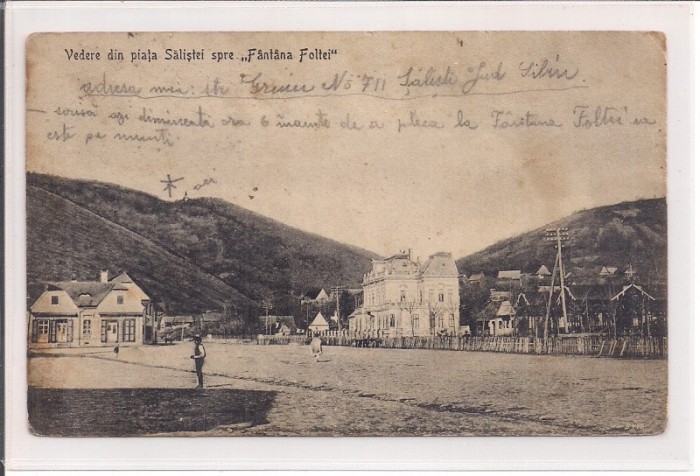 Vedere din piața Săliștei spre „Fântâna Foltei"
adresa mea: str Grivei No 711 Săliști Jud Sibiu
sousă azi dimineață ora 6 înainte de a pleca la Fântâna Foltei ce
este pe munți.
aci